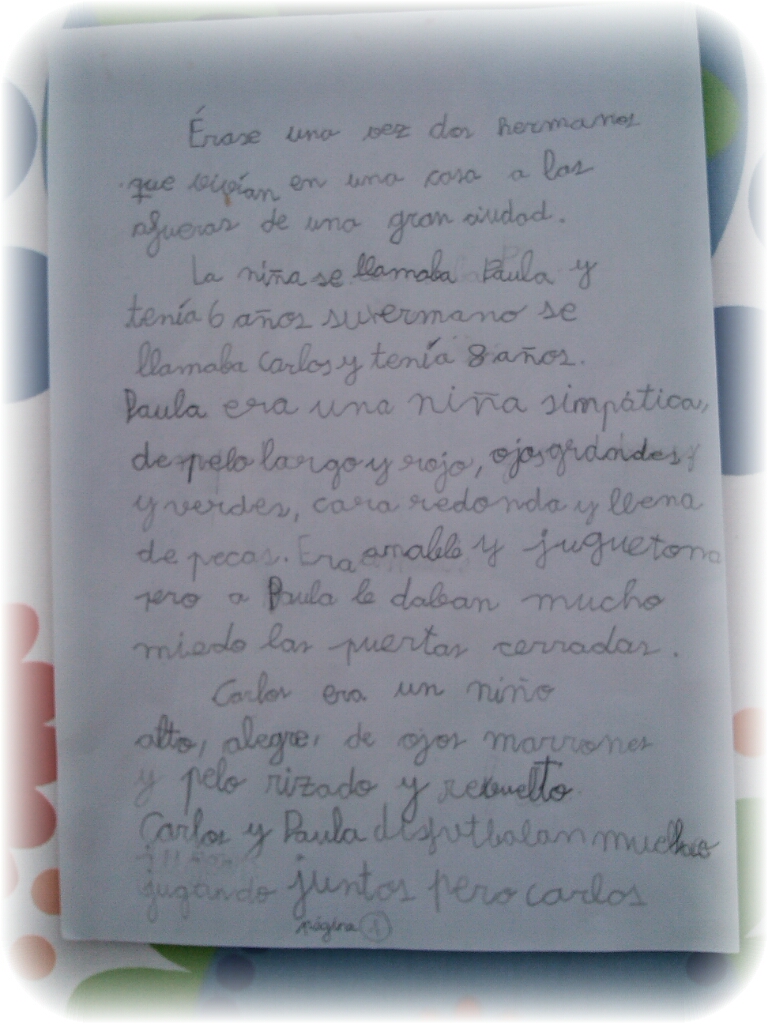 Érase una vez dos hermanos
que vivían en una casa a las
afueras de una gran ciudad.
La niña se llamaba Paula y
tenía 6 años su ermano se
llamaba Carlos y tenía 8 años.
Paula era una niña simpática,
de pelo largo y rojo, ojos grandes
y verdes, cara redonda y llena
de pecas. Era amable y juguetona
pero a Paula le daban mucho
miedo las puertas cerradas.
Carlos era un niño
alto, alegre, de ojos marrones
y pelo rizado y revuelto
Carlos y Paula disfutbalan mucho
jugando juntos pero carlos
página 1